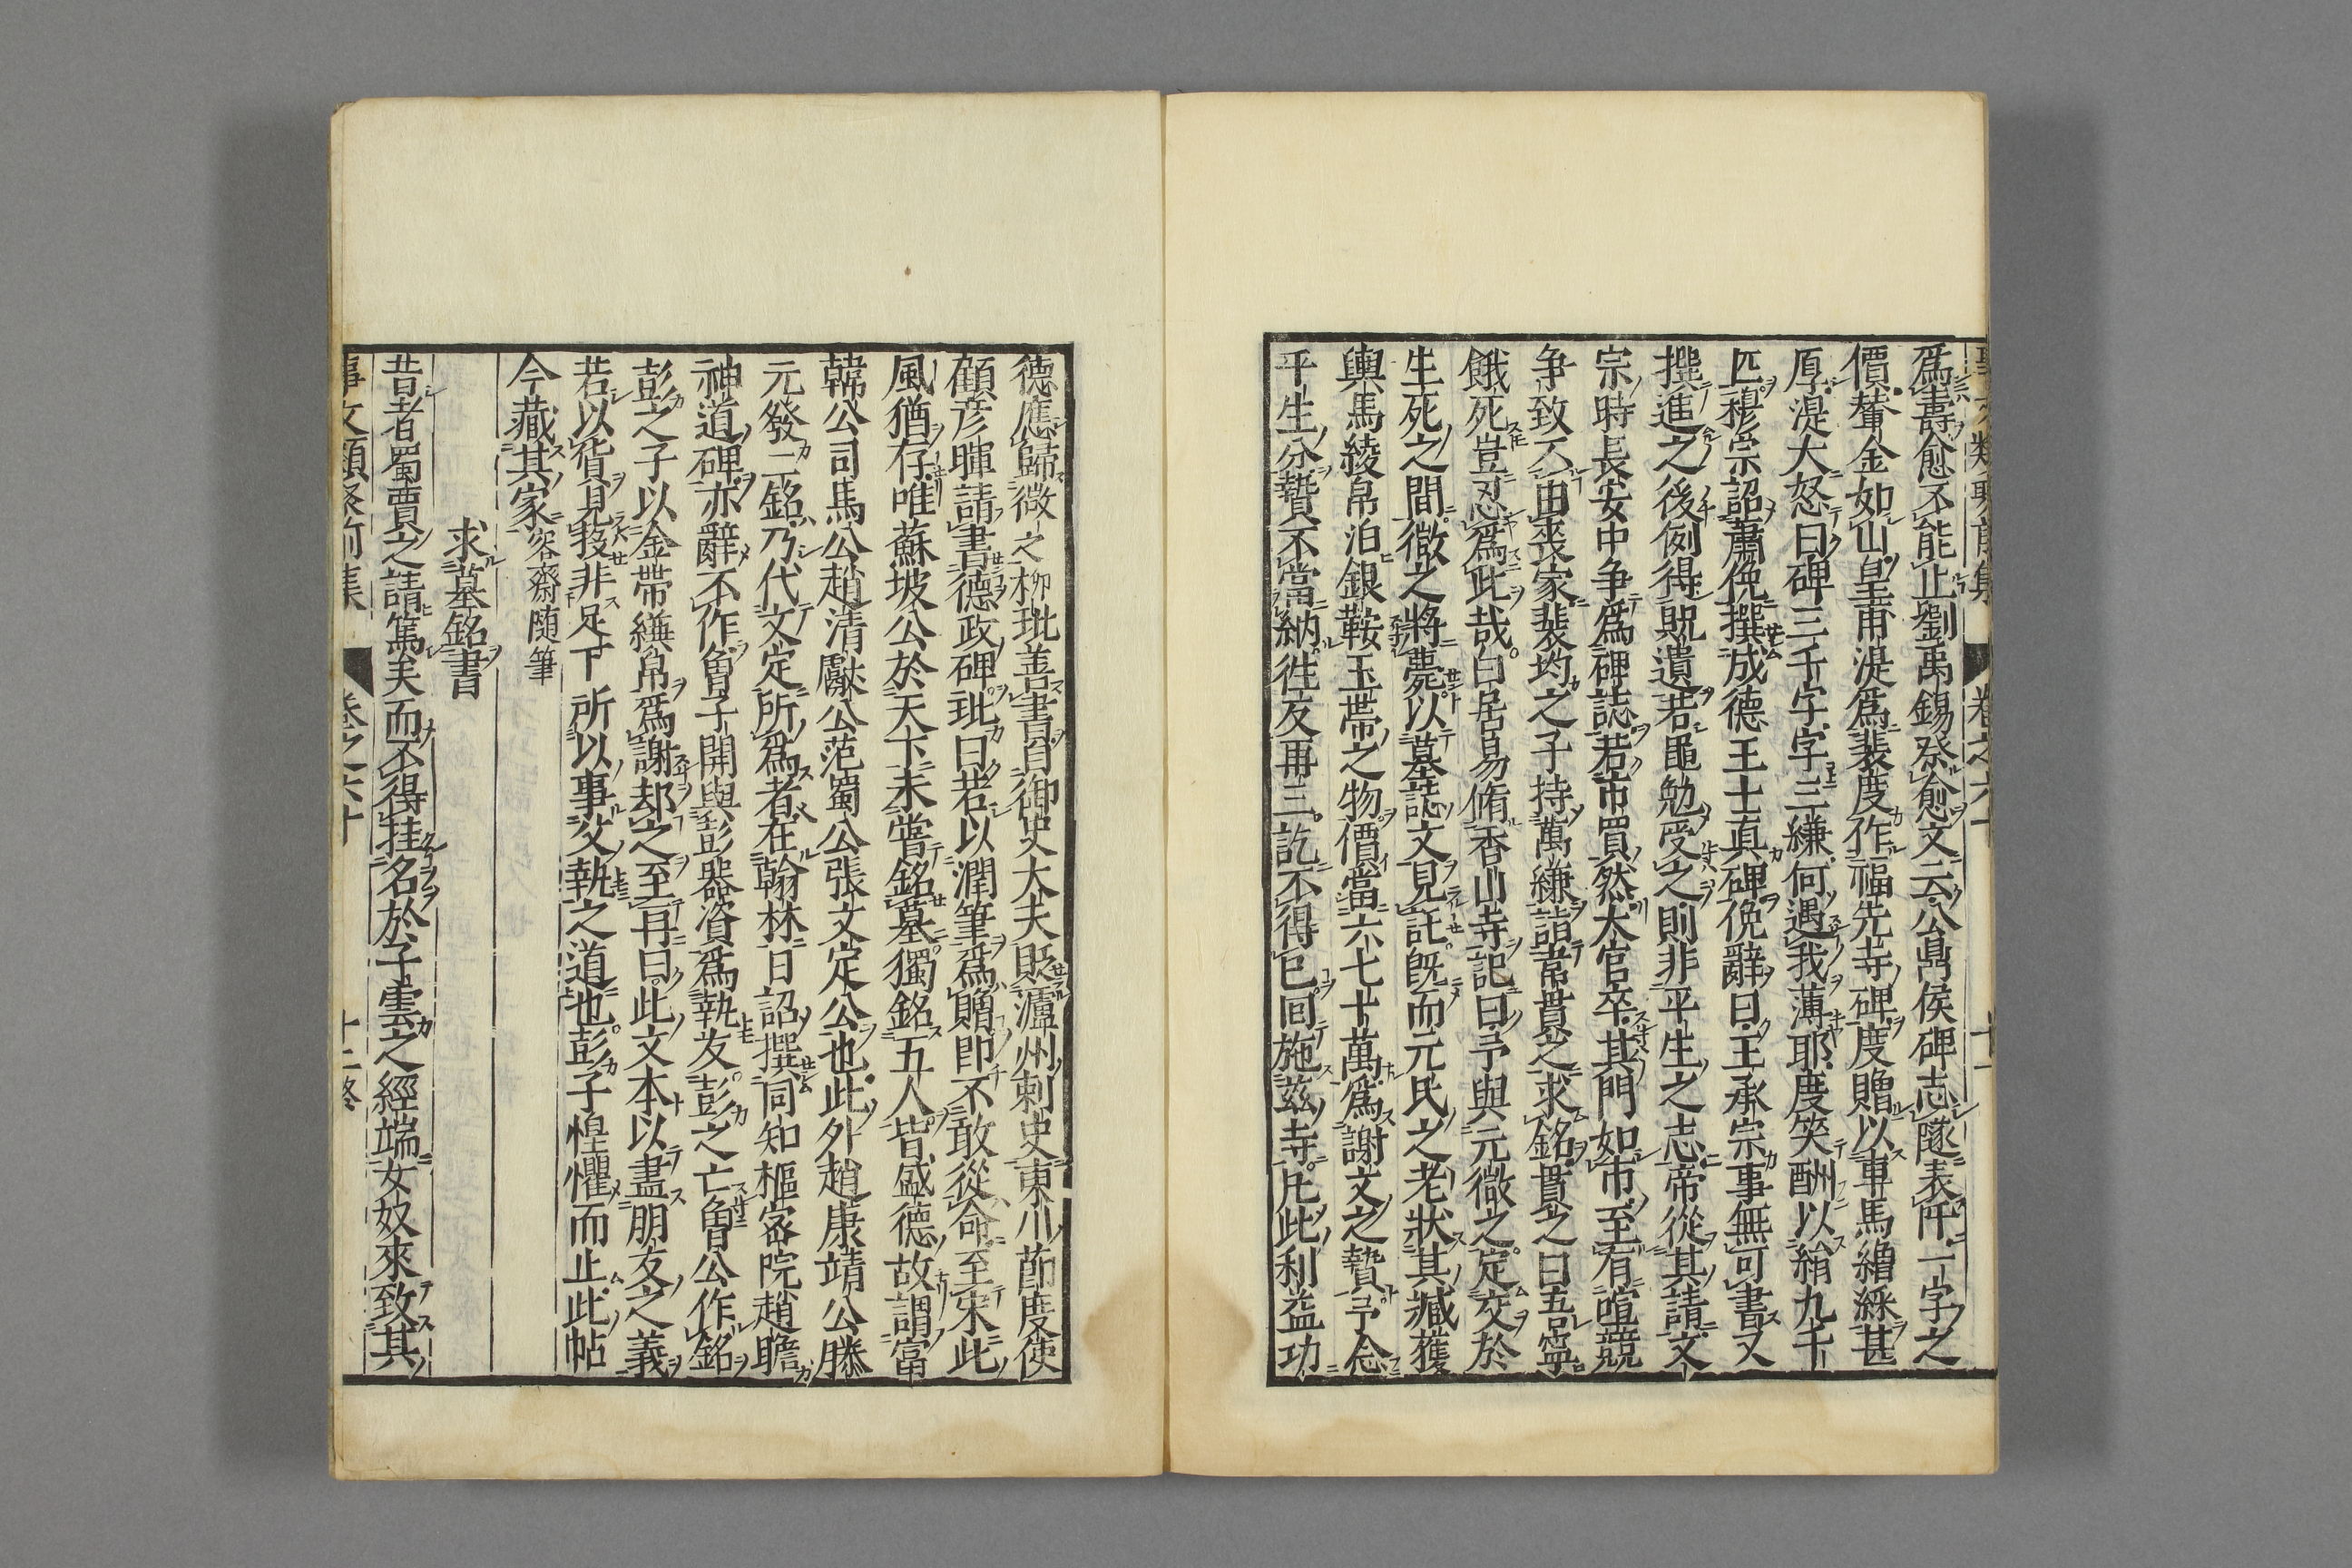 為壽愈不能止劉禹錫祭愈文云公鼎侯碑志隧表阡一字之
價輦金如山皇甫湜為裴度作福先寺碑度贈以車馬繒綵甚
厚湜大怒曰碑三千字字三縑何遇我薄耶度笑酬以絹九千
匹穆宗詔蕭俛撰成德王士真碑俛辭曰王承宗事無可書又
撰進之後例得貺遺若黽勉受之則非平生之志帝從其請文
宗時長安中争為碑誌若市買然大官卒其門如市至有喧競
争致不由喪家裴均之子持萬縑詣韋貫之求銘貫之曰吾寧
餓死豈忍為此哉白居易脩香山寺記曰予與元微之定交於
生死之間微之將薨以墓誌文見託既而元氏之老狀其臧獲
輿馬綾帛泊銀鞍玉帶之物價當六七十萬為謝文之贄予念
平生分贄不當納往反再三訖不得已回施兹寺凡此利益功
德應歸微之柳玭善書自御史大夫貶瀘州刺史東川節度使
顧彦暉請書德政碑玭曰若以潤筆為贈即不敢從命至宋此
風猶存唯蘇坡公於天下未嘗銘墓獨銘五人皆盛德故謂富
韓公司馬公趙清獻公范蜀公張文定公也此外趙康靖公滕
元發二銘乃代文定所為者在翰林日詔撰同知樞密院趙瞻
神道碑亦辭不作曾子開與彭器資為執友彭之亡曾公作銘
彭之子以金帶縑帛為謝却之至再曰此文本以盡朋友之義
若以貨見投非足下所以事父執之道也彭子惶懼而止此帖
今藏其家 容齋随筆
求墓銘書
昔者蜀賈之請篤矣而不得挂名於子雲之經端女奴來致其
事文類聚前集 卷之六十 十二終